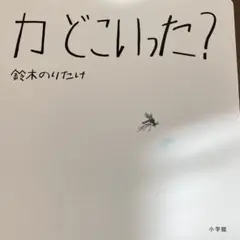 カ どこいった?
鈴木のりたけ
小学館